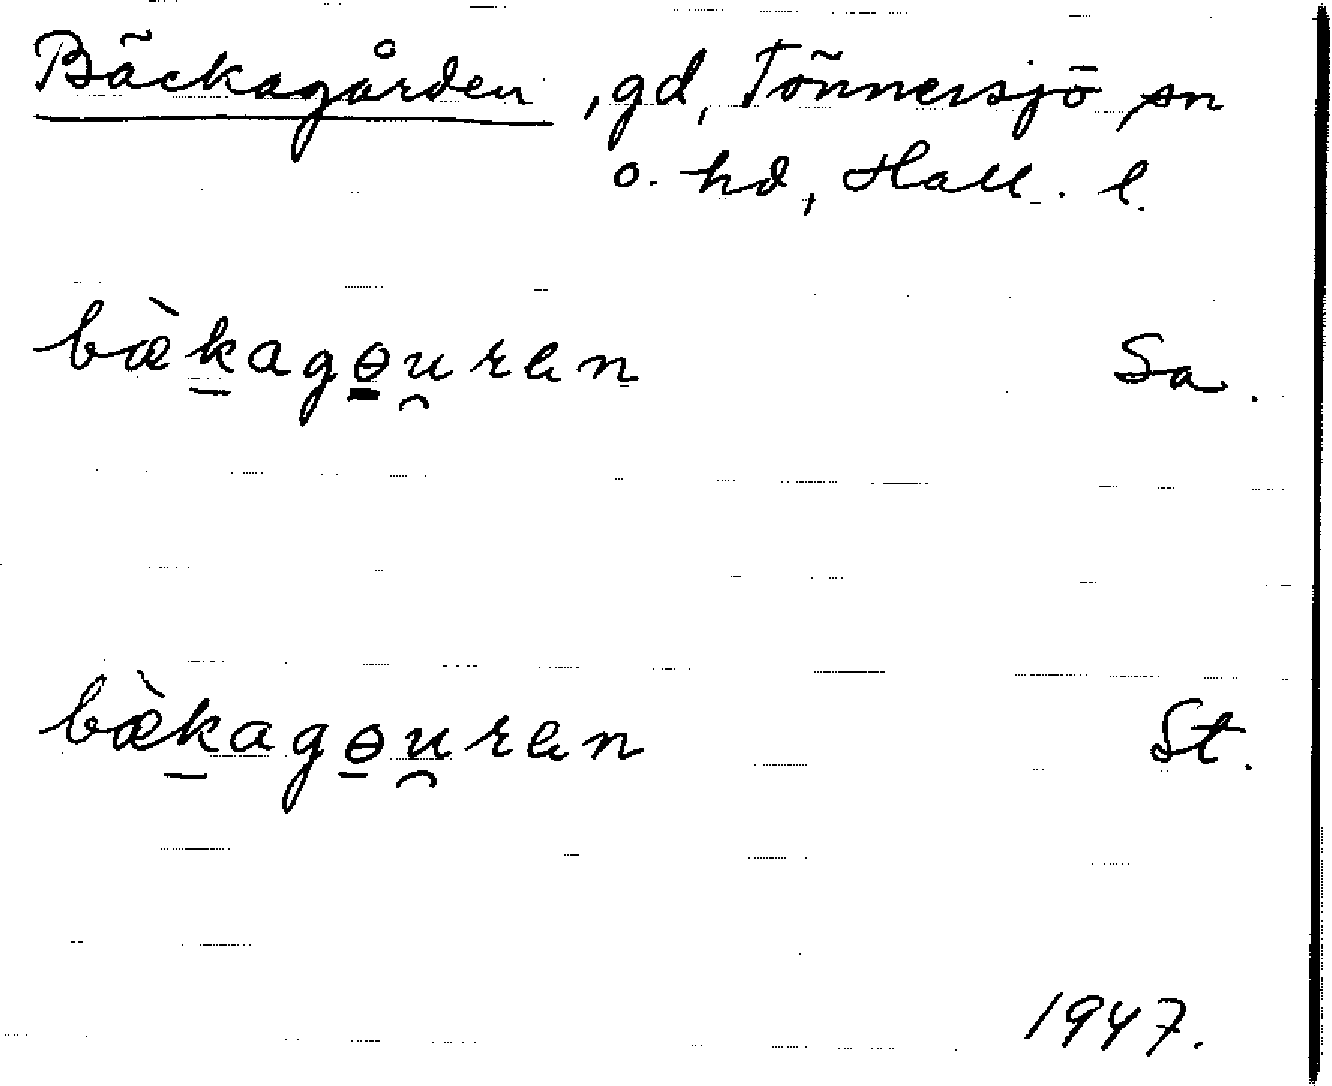 Bäckagården, gd, Tönnersjö sn
o. hd, Hall. l.
bæ̀k̠agɵ̠u̯ren Sa.
bæ̀k̠agɵ̠u̯ren St.
1947.